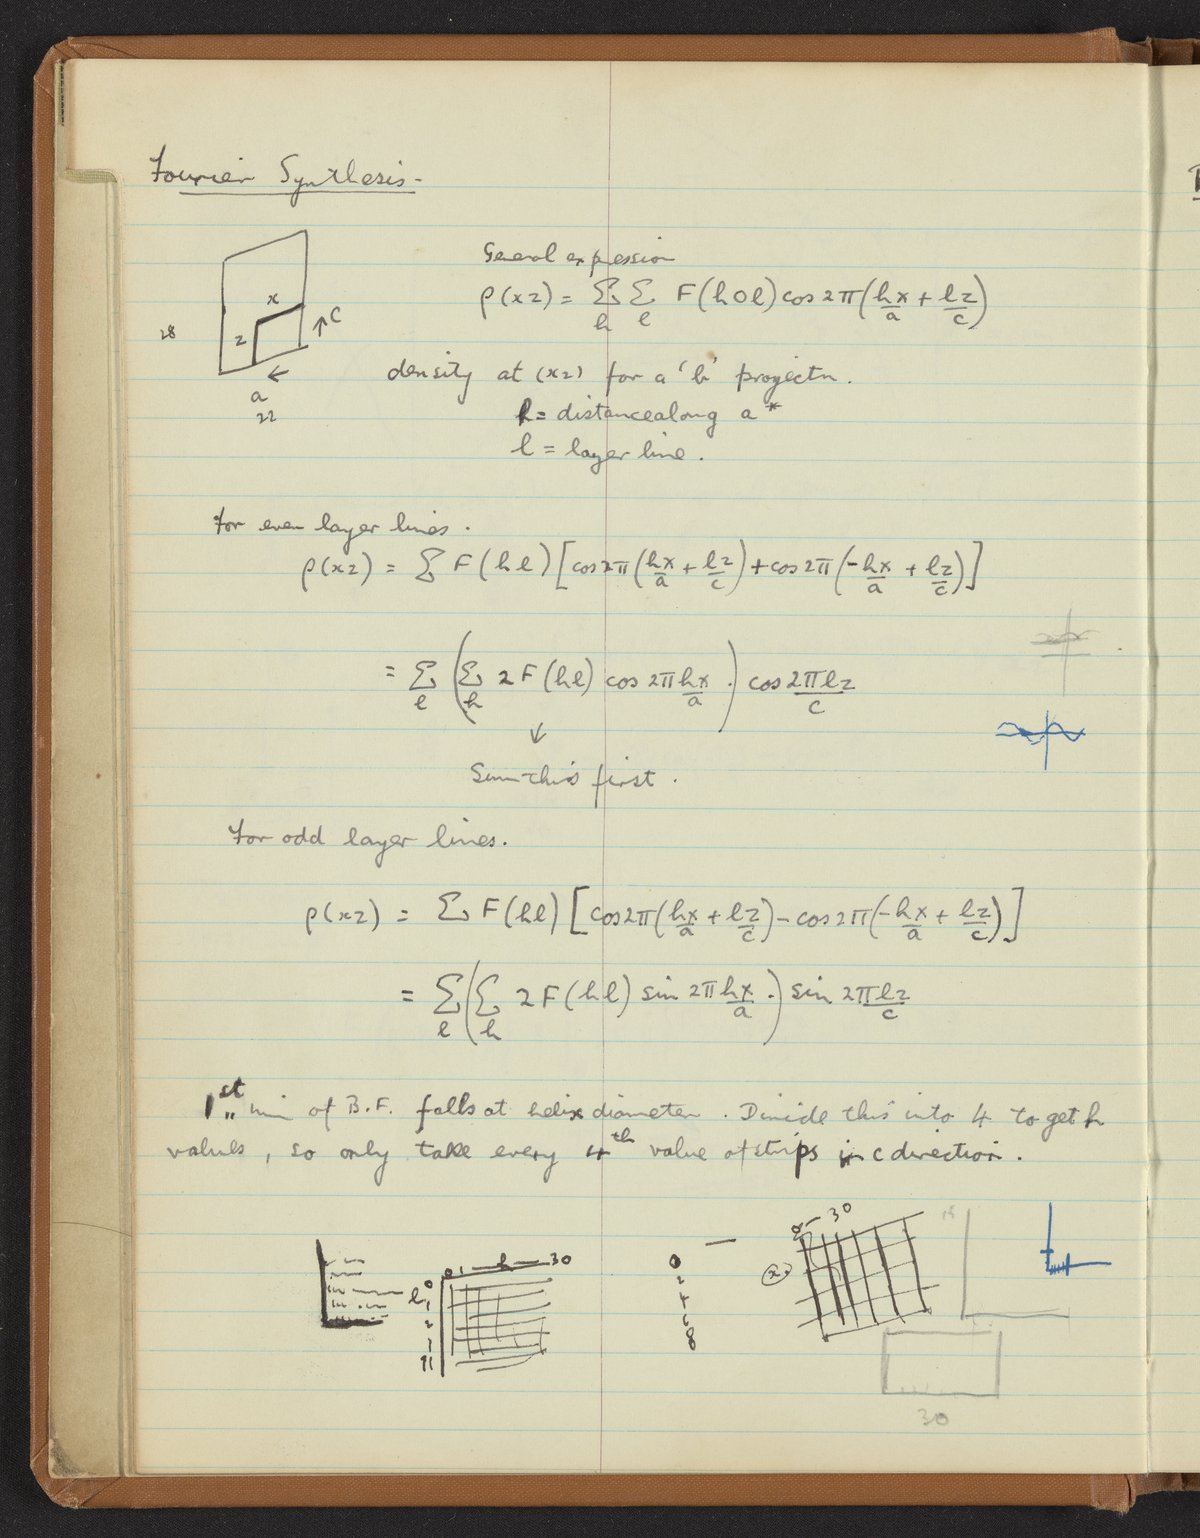 Fourier Synthesis -
General expression
ρ(xz) = Σ Σ F(h0l) cos 2π(hx/a + lz/c)
h l
x
z
↑ C
28
a ←
22
density at (xz) for a 'b' projectn.
h = distance along a*
l = layer line.
For even layer lines.
ρ(xz) = Σ F(hl) [cos 2π(hx/a + lz/c) + cos 2π(-hx/a + lz/c)]
= Σ (Σ 2F(hl) cos 2π hx/a .) cos 2πlz/c
l h
↓
Sum this first.
For odd layer lines.
ρ(xz) = Σ F(hl) [cos 2π(hx/a + lz/c) - cos 2π(-hx/a + lz/c)]
= Σ (Σ 2F(hl) sin 2π hx/a .) sin 2π lz/c
l h
1st min of B.F. falls at helix diameter. Divide this into 4 to get h
values, so only take every 4th value of strips in c direction.
0 1 — h — 30
l 0
1
2
0
2
4
6
8
0 - 30
(x)
30